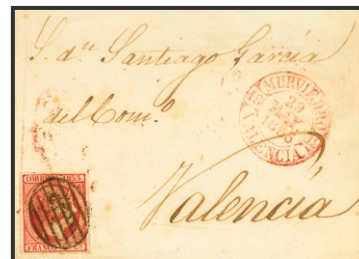 S. dn. Santiago García
del Com.o
MURVIEDRO
VALENCIA
Valencia
CORREOS 1853
FRANCO